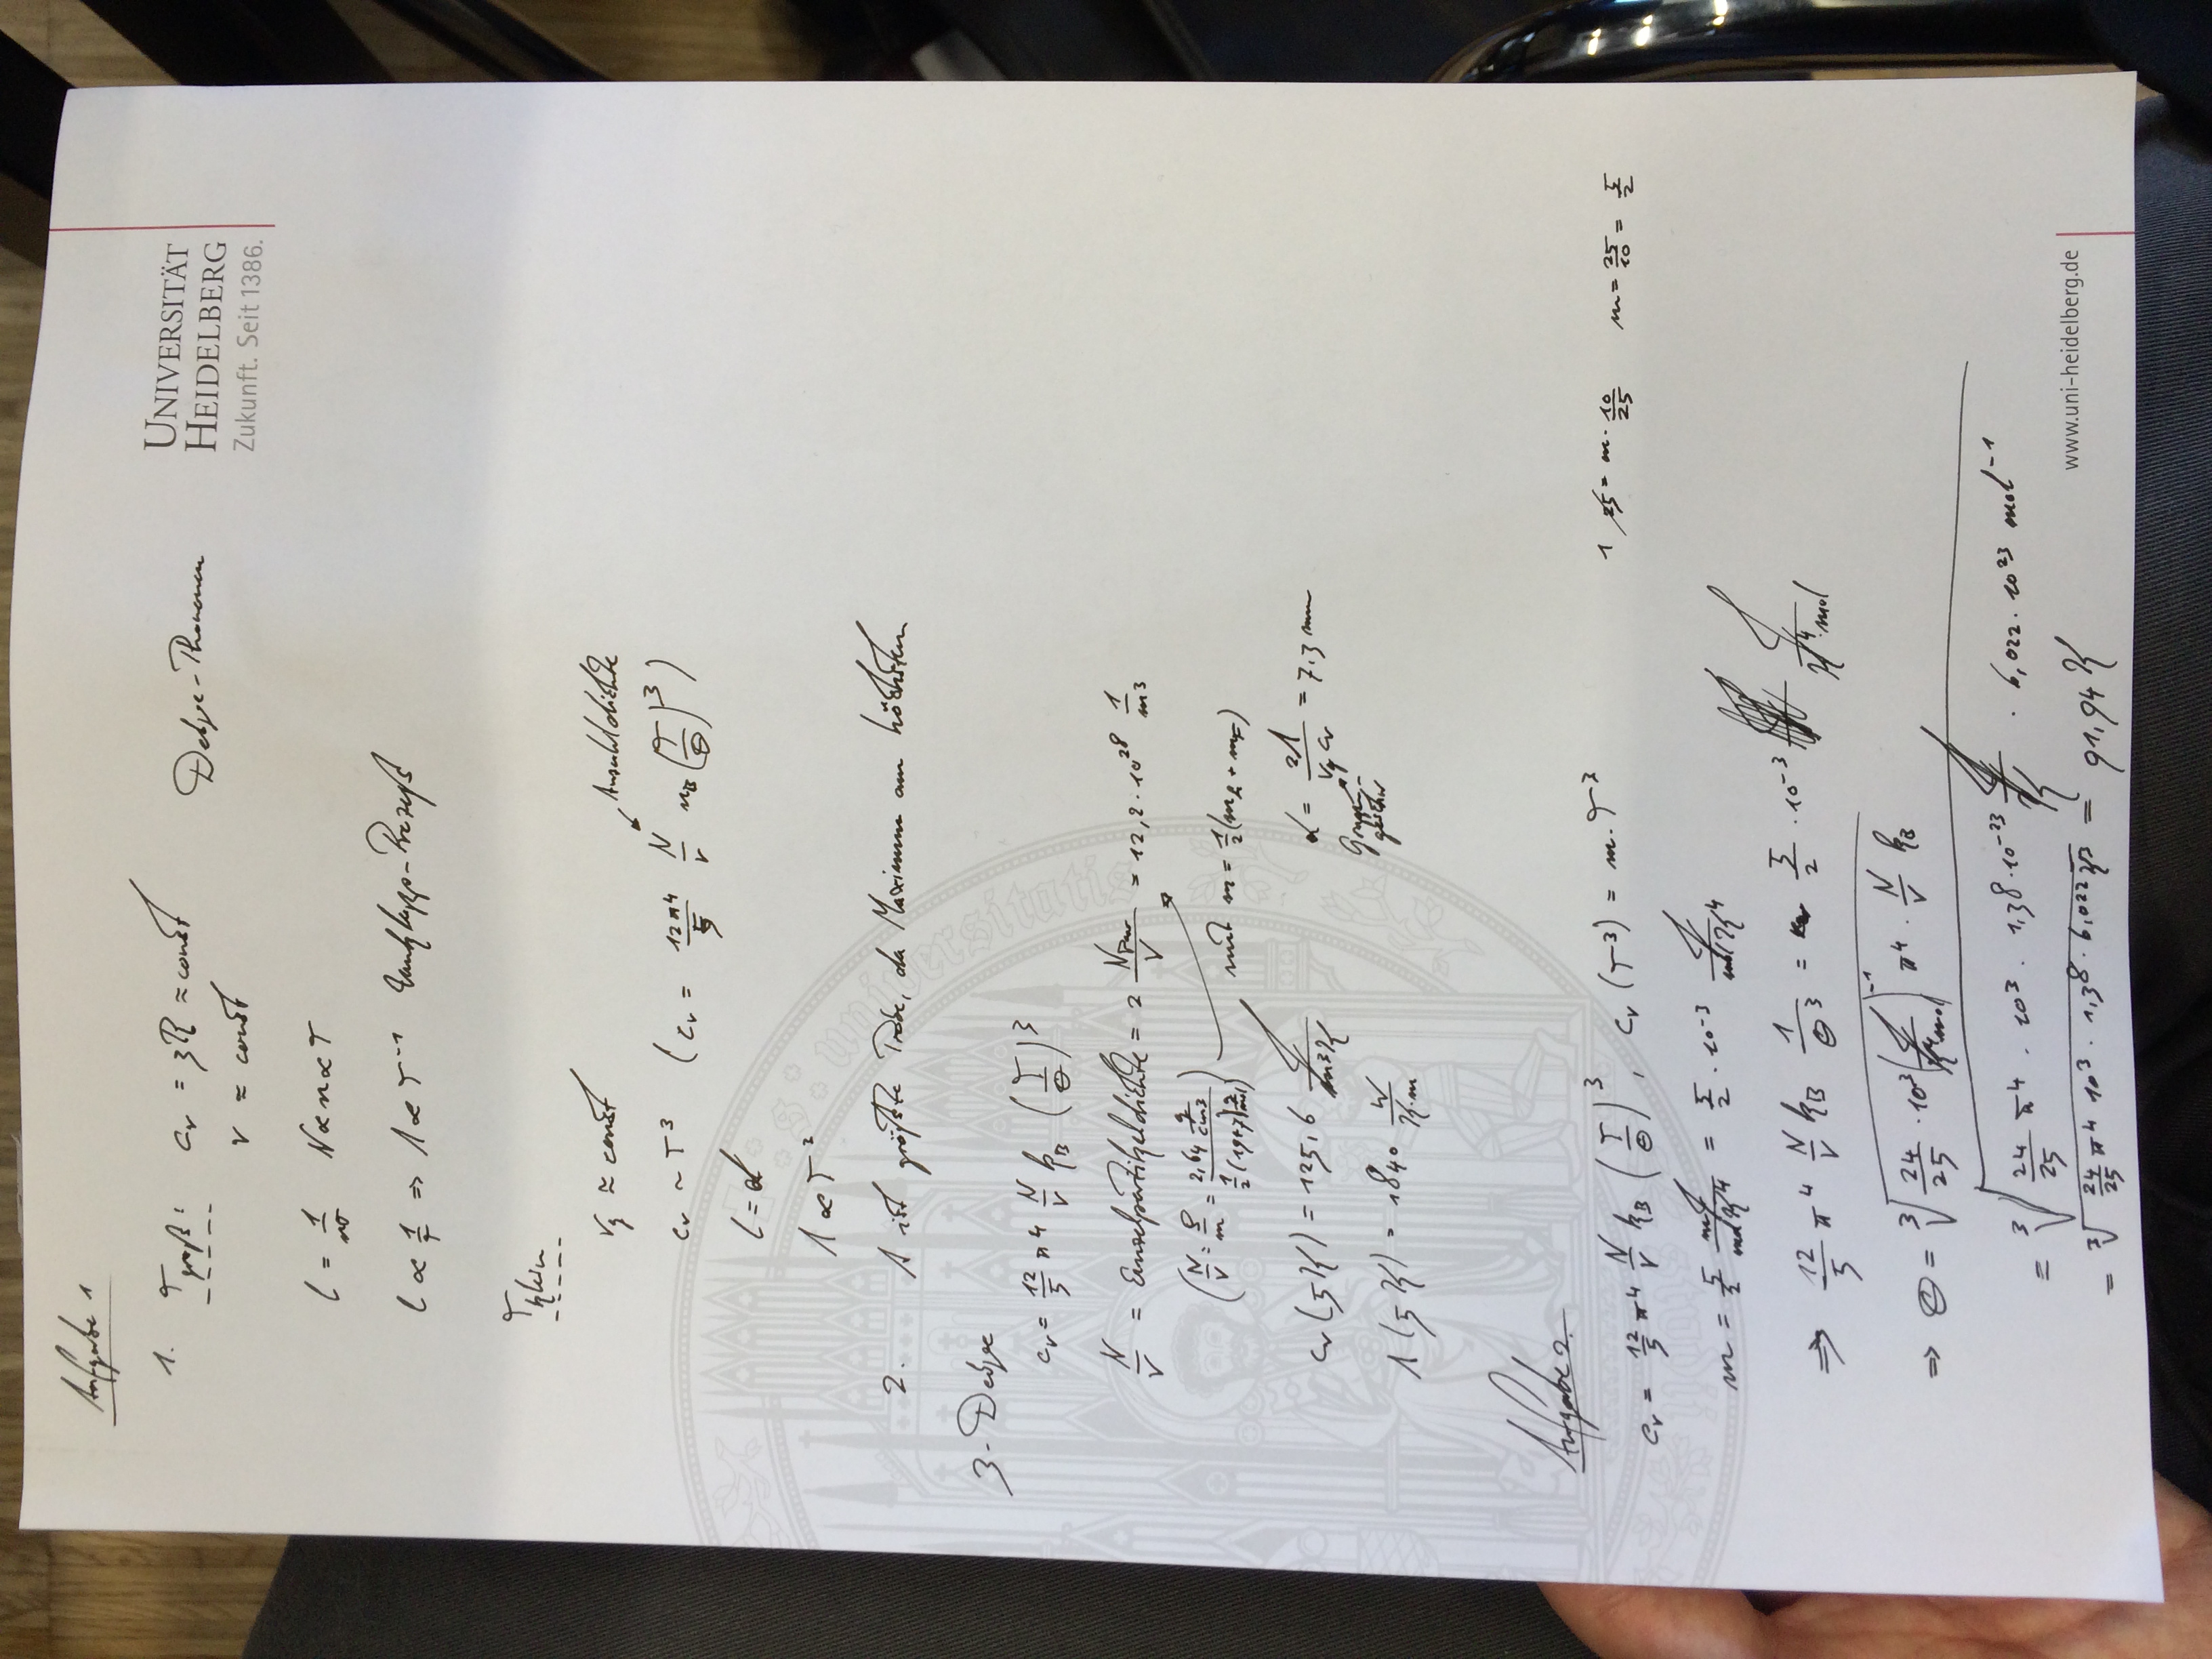 UNIVERSITÄT
HEIDELBERG
Zukunft. Seit 1386.
Aufgabe 1
1. T groß: c_v = 3R ≈ const Debye-Phononen
v ≈ const
l = 1/nσ N ∝ n ∝ T
l ∝ 1/T ⇒ Λ ∝ T^-1 Umklapp-Prozeß
T klein
v_g ≈ const Anzahldichte
c_v ~ T^3 (c_v = 12π^4/5 N/V k_B (T/Θ)^3)
l = d
Λ ∝ T^3
2. Λ ist größte Probe, da Maximum am höchsten
3. Debye
c_v = 12/5 π^4 N/V k_B (T/Θ)^3
N/V = Einzelpartikeldichte = 2 N/V = 12,2 · 10^28 1/m^3
(N/V = ρ/m = 2,64 g/cm^3 / 1/2 (19+7) g/mol) mit m = 1/2 (m + m_F)
c_v (5K) = 125,6 J/m^3K d = 3Λ/v_g c_v = 7,3 mm
Λ (5K) = 1840 W/K·m Gruppengeschw
Aufgabe 2
1 = m · 10/25 m = 25/10 = 5/2
c_v = 12/5 π^4 N/V k_B (T/Θ)^3 , c_v (T^3) = m · T^3
m = 5/2 mJ/mol K^4 = 5/2 · 10^-3 J/mol K^4
⇒ 12/5 π^4 N/V k_B 1/Θ^3 = 5/2 · 10^-3 J/K^4 mol
⇒ Θ = ∛(24/25 · 10^3 (J/K^4 mol)^-1 π^4 · N/V k_B)
= ∛(24/25 π^4 · 10^3 · 1,38 · 10^-23 J/K · 6,022 · 10^23 mol^-1
= ∛(24/25 π^4 10^3 · 1,38 · 6,022 K^3) = 91,94 K
www.uni-heidelberg.de